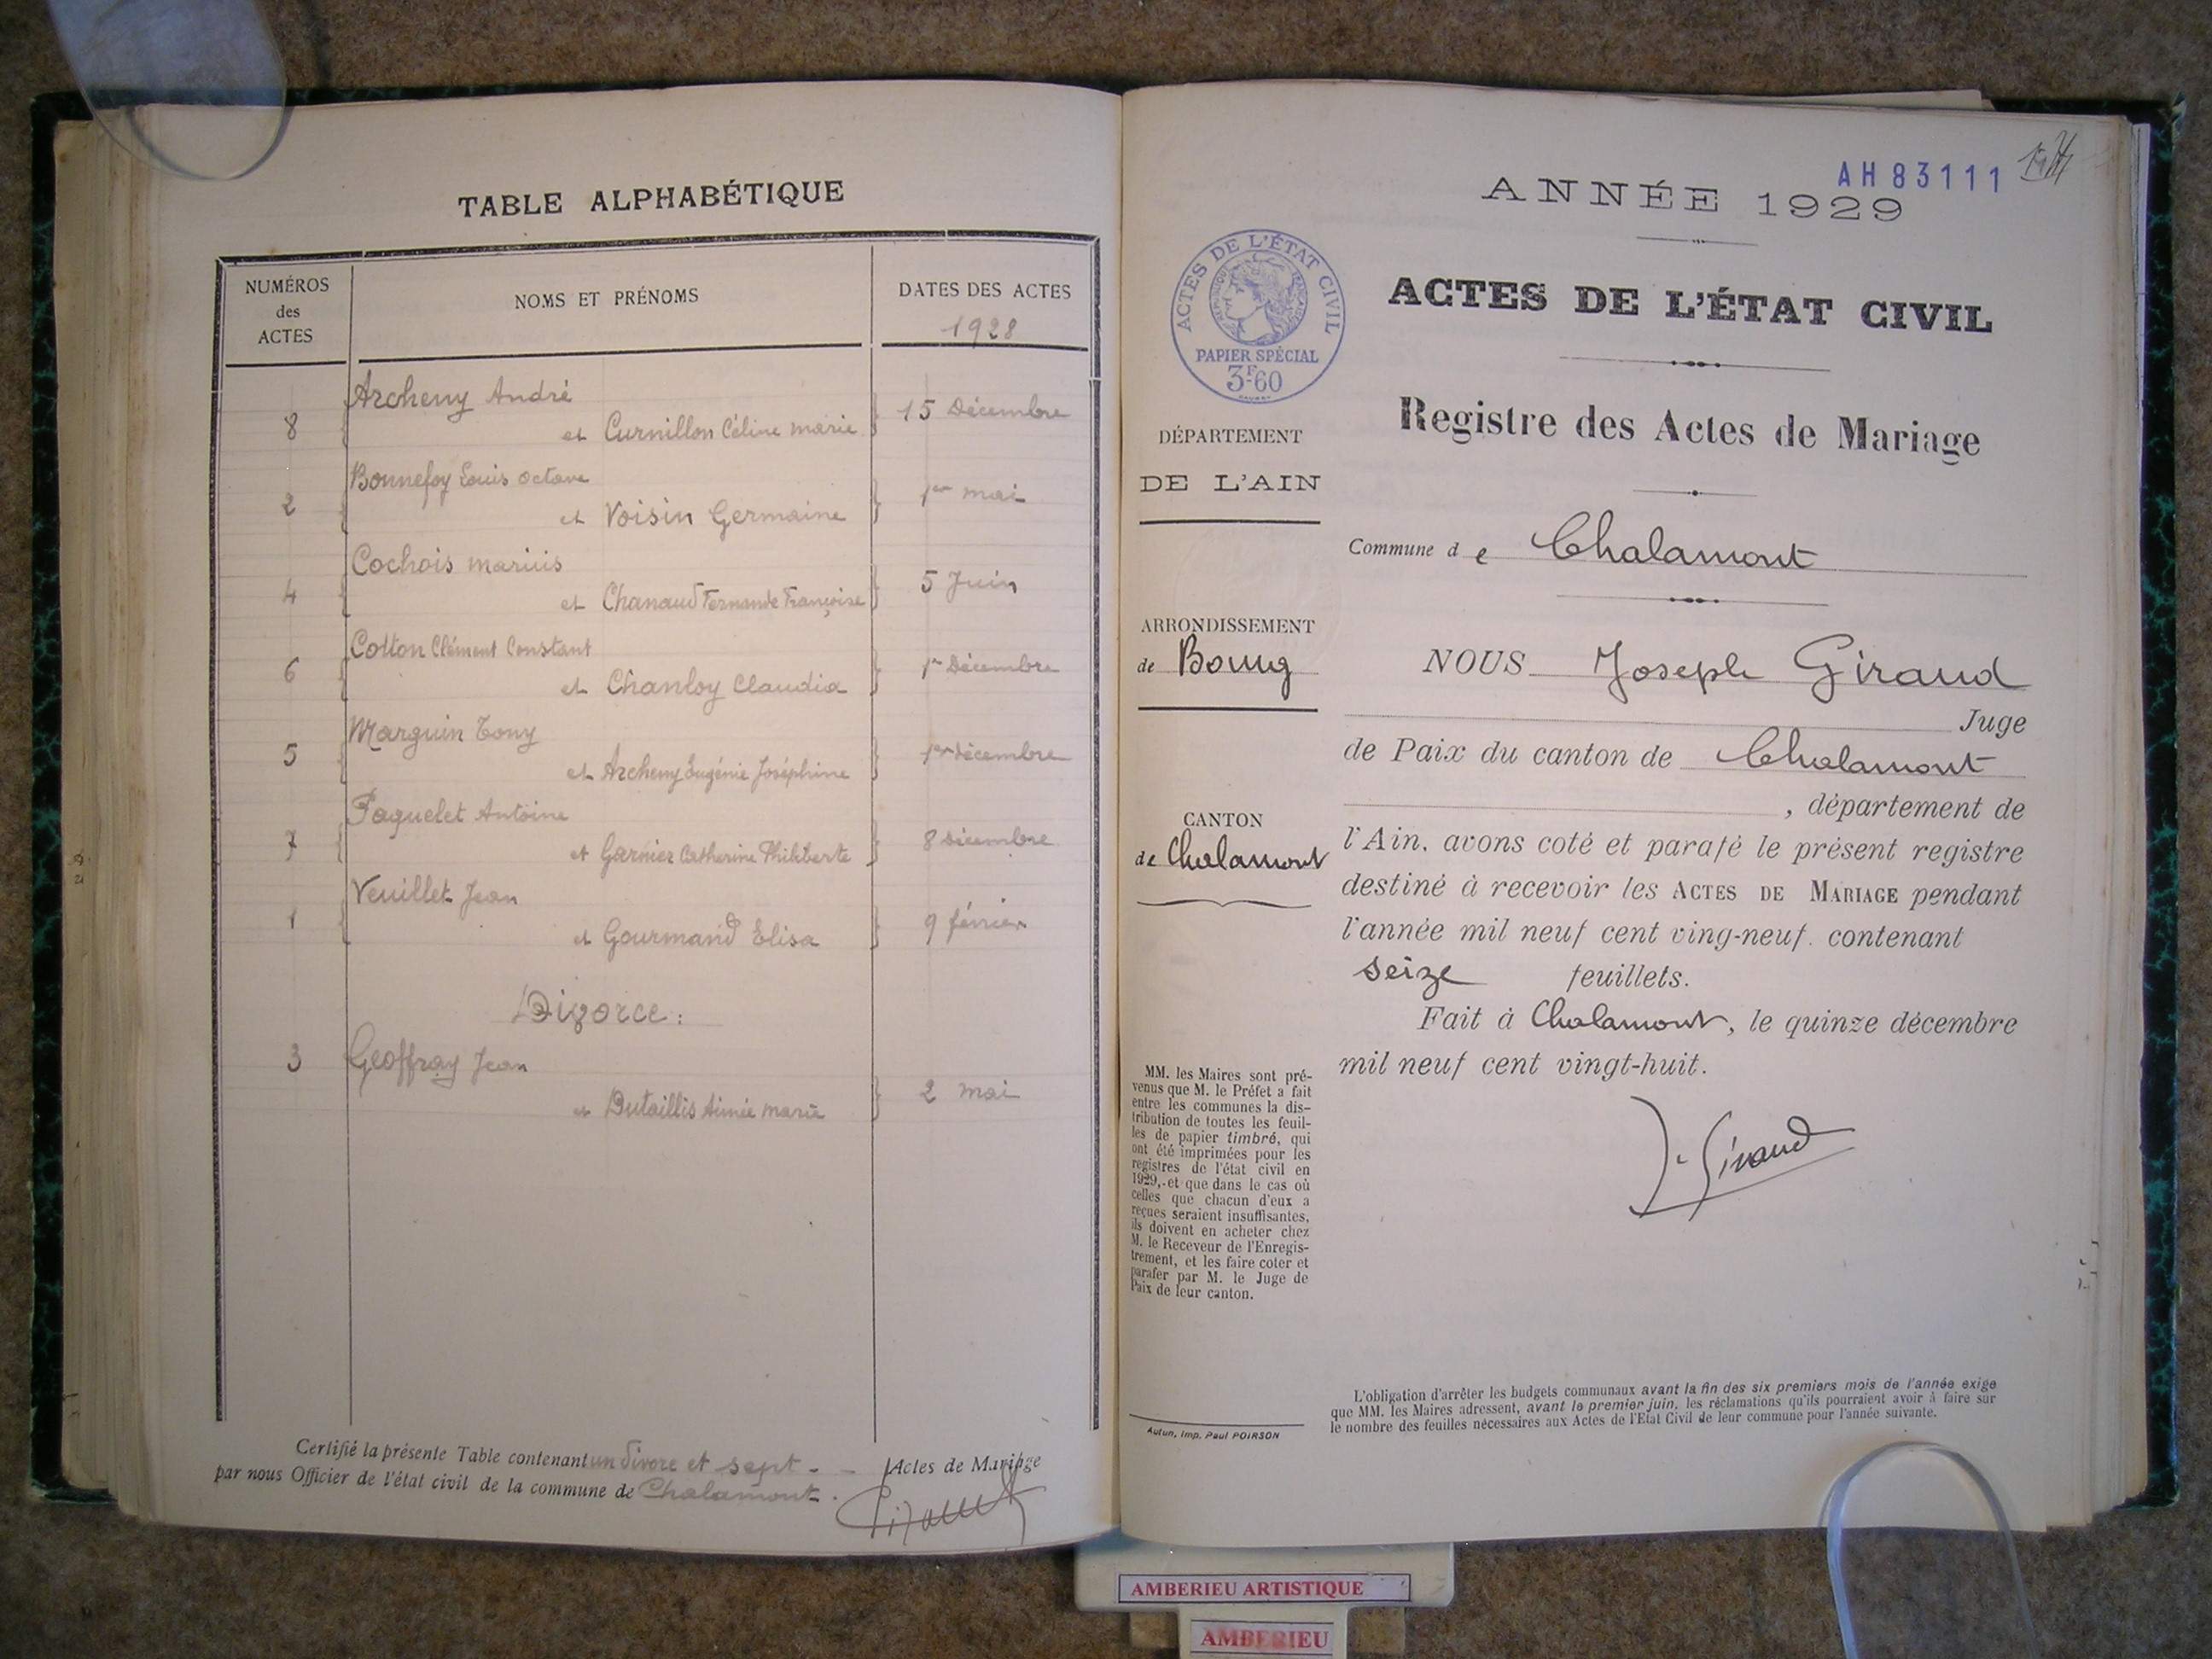 TABLE ALPHABÉTIQUE
NUMÉROS
des
ACTES
NOMS ET PRÉNOMS
DATES DES ACTES
1928
Archeny André
8
et Curnillon Céline Marie
15 Décembre
Bonnefoy Louis Octave
2
et Voisin Germaine
1er mai
Cochois Marius
4
et Chanaud Fernande Françoise
5 Juin
Cotton Clément Constant
6
et Chanloy Claudia
1er Décembre
Marguin Tony
5
et Archeny Eugénie Joséphine
1er décembre
Paquelet Antoine
7
et Garnier Catherine Philiberte
8 Décembre
Veuillet Jean
1
et Gourmand Elisa
9 février
Divorce :
3
Geoffray Jean
et Dutaillis Aimée Marie
2 mai
Certifié la présente Table contenant un divorce et sept - - Actes de Mariage
par nous Officier de l'état civil de la commune de Chalamont.
Giraud
AH 83111
ANNÉE 1929
ACTES DE L'ÉTAT CIVIL
PAPIER SPÉCIAL
3F60
ACTES DE L'ÉTAT CIVIL
Registre des Actes de Mariage
DÉPARTEMENT
DE L'AIN
Commune de Chalamont
ARRONDISSEMENT
de Bourg
CANTON
de Chalamont
NOUS Joseph Giraud
Juge
de Paix du canton de Chalamont
, département de
l'Ain, avons coté et parafé le présent registre
destiné à recevoir les ACTES DE MARIAGE pendant
l'année mil neuf cent ving-neuf. contenant
seize feuillets.
Fait à Chalamont, le quinze décembre
mil neuf cent vingt-huit.
J. Giraud
MM. les Maires sont pré-
venus que M. le Préfet a fait
entre les communes la dis-
tribution de toutes les feuil-
les de papier timbré, qui
ont été imprimées pour les
registres de l'état civil en
1929, et que dans le cas où
celles que chacun d'eux a
reçues seraient insuffisantes,
ils doivent en acheter chez
M. le Receveur de l'Enregis-
trement, et les faire coter et
parafer par M. le Juge de
Paix de leur canton.
Autun, Imp. Paul POIRSON
L'obligation d'arrêter les budgets communaux avant la fin des six premiers mois de l'année exige
que MM. les Maires adressent, avant le premier juin, les réclamations qu'ils pourraient avoir à faire sur
le nombre des feuilles nécessaires aux Actes de l'Etat Civil de leur commune pour l'année suivante.
AMBERIEU ARTISTIQUE
AMBERIEU